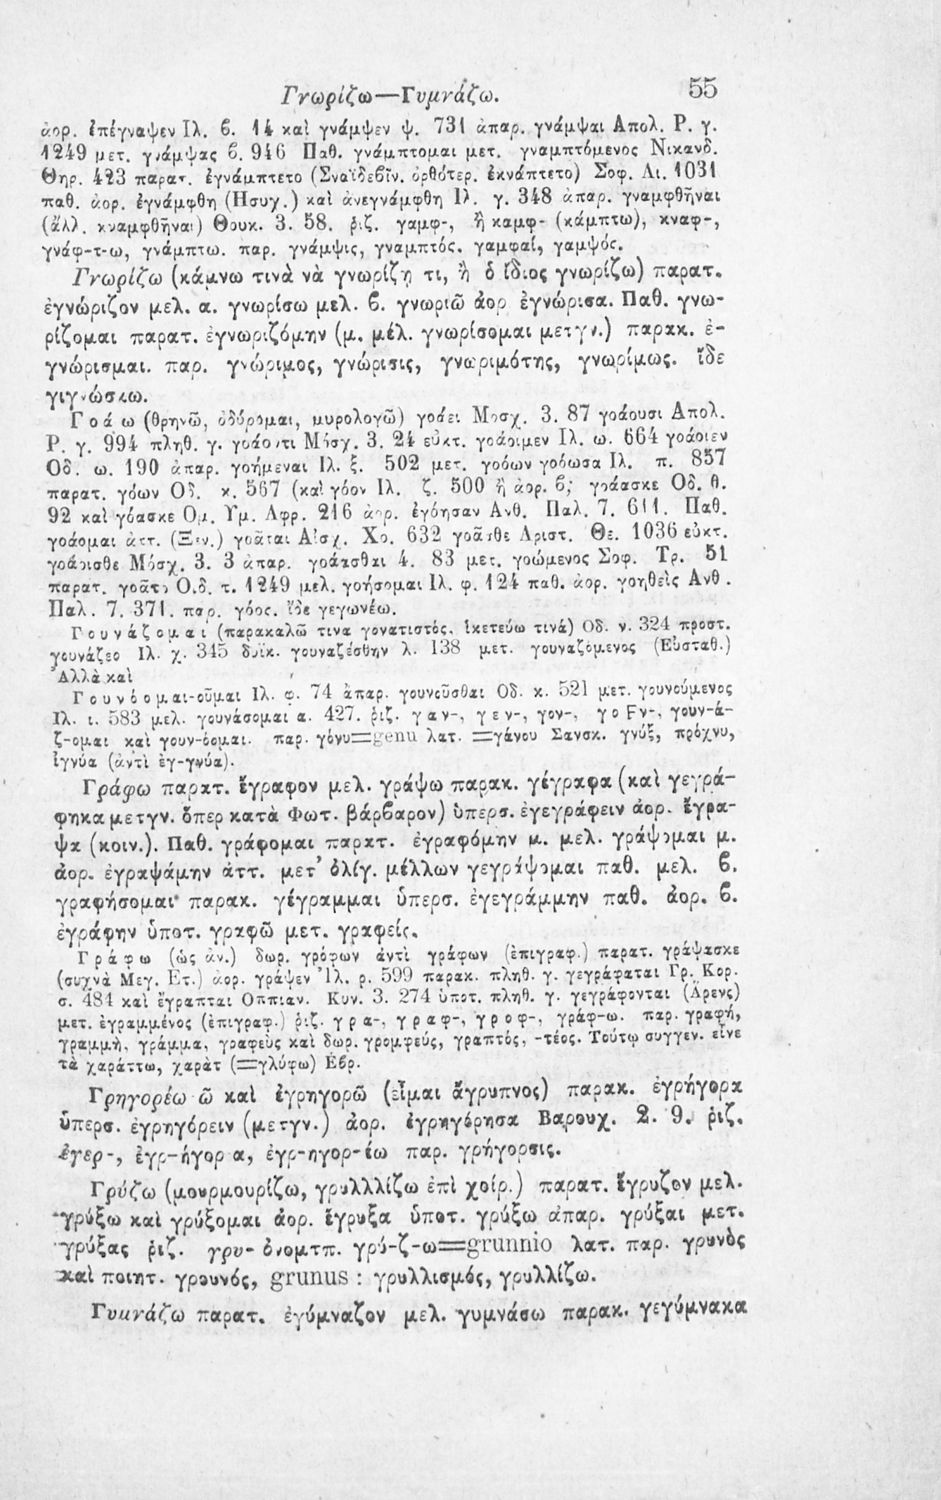 Γνωρίζω—Γυμνάζω. 55
ἀορ. ἐπέγναψεν Ἰλ. ϐ. 14 καὶ γνάμψεν ψ. 731 ἀπαρ. γνάμψαι Ἀπολ. Ρ. γ.
1249 μετ. γνάμψας ϐ. 946 Παθ. γνάμπτομαι μετ. γναμπτόμενος Νικανδ.
Θηρ. 423 παρατ. ἐγνάμπτετο (Σναϊδεϐῖν. ὀρθότερ. ἐκνάπτετο) Σοφ. Αι. 1031
παθ. ἀορ. ἐγνάμφθη (Ησυχ.) καὶ ἀνεγνάμφθη Ἰλ. γ. 348 ἀπαρ. γναμφθῆναι
(ἄλλ. κναμφθῆναι) Θουκ. 3. 58. ῥιζ. γαμφ-, ἢ καμφ- (κάμπτω), κναφ-,
γνάφ-τ-ω, γνάμπτω. παρ. γνάμψις, γναμπτός. γαμφαί, γαμψός.
Γνωρίζω (κάμνω τινὰ νὰ γνωρίζῃ τι, ἢ ὁ ἴδιος γνωρίζω) παρατ.
ἐγνώριζον μελ. α. γνωρίσω μελ. ϐ. γνωριῶ ἀορ ἐγνώρισα. Παθ. γνω-
ρίζομαι παρατ. ἐγνωριζόμην (μ. μέλ. γνωρίσομαι μετγν.) παρακ. ἐ-
γνώρισμαι. παρ. γνώριμος, γνώρισις, γνωριμότης, γνωρίμως. ἴδε
γιγνώσκω.
Γοάω (θρηνῶ, ὀδύρομαι, μυρολογῶ) γοάει Μοσχ. 3. 87 γοάουσι Ἀπολ.
Ρ. γ. 994 πληθ. γ. γοάοντι Μόσχ. 3. 24 εὐκτ. γοάοιμεν Ἰλ. ω. 664 γοάοιεν
Οδ. ω. 190 ἀπαρ. γοήμεναι Ἰλ. ξ. 502 μετ. γοόων γοόωσα Ἰλ. π. 857
παρατ. γόων Οδ. κ. 567 (καὶ γόον Ἰλ. ζ. 500 ἢ ἀορ. ϐ; γοάασκε Οδ. θ.
92 καὶ γόασκε Ομ. Υμ. Αφρ. 216 ἀορ. ἐγόησαν Ανθ. Παλ. 7. 611. Παθ.
γοάομαι ἀττ. (Ξεν.) γοᾶται Αἰσχ. Χο. 632 γοᾶσθε Αριστ. Θε. 1036 εὐκτ.
γοάοισθε Μόσχ. 3. 3 ἀπαρ. γοάασθαι 4. 83 μετ. γοώμενος Σοφ. Τρ. 51
παρατ. γοᾶτο Ο.δ. τ. 1249 μελ. γοήσομαι Ἰλ. φ. 124 παθ. ἀορ. γοηθεὶς Ανθ.
Παλ. 7. 371. παρ. γόος. ἴδε γεγωνέω.
Γουνάζομαι (παρακαλῶ τινα γονατιστός. ἱκετεύω τινά) Οδ. ν. 324 προστ.
γουνάζεο Ἰλ. χ. 345 δυϊκ. γουναζέσθην λ. 138 μετ. γουναζόμενος (Εὐσταθ.)
Ἀλλὰ καὶ
Γουνόομαι-οῦμαι Ἰλ. φ. 74 ἀπαρ. γουνοῦσθαι Οδ. κ. 521 μετ. γουνούμενος
Ἰλ. ι. 583 μελ. γουνάσομαι α. 427. ῥιζ. γαν-, γεν-, γον-, γοFν-, γουν-ά-
ζ-ομαι καὶ γουν-όομαι. παρ. γόνυ=genu λατ. =γάνου Σανσκ. γνύξ, πρόχνυ,
ἰγνύα (ἀντὶ ἐγ-γνύα).
Γράφω παρατ. ἔγραφον μελ. γράψω παρακ. γέγραφα (καὶ γεγρά-
φηκα μετγν. ὅπερ κατὰ Φωτ. βάρϐαρον) ὑπερσ. ἐγεγράφειν ἀορ. ἔγρα-
ψα (κοιν.). Παθ. γράφομαι παρατ. ἐγραφόμην μ. μελ. γράψομαι μ.
ἀορ. ἐγραψάμην ἀττ. μετ' ὀλίγ. μέλλων γεγράψομαι παθ. μελ. ϐ.
γραφήσομαι· παρακ. γέγραμμαι ὑπερσ. ἐγεγράμμην παθ. ἀορ. ϐ.
ἐγράφην ὑποτ. γραφῶ μετ. γραφείς.
Γράφω (ὡς ἀν.) δωρ. γρόφων ἀντὶ γράφων (ἐπιγραφ.) παρατ. γράψασκε
(συχνὰ Μεγ. Ετ.) ἀορ. γράψεν Ἰλ. ρ. 599 παρακ. πληθ. γ. γεγράφαται Γρ. Κορ.
σ. 484 καὶ ἔγραπται Οππιαν. Κυν. 3. 274 ὑποτ. πληθ. γ. γεγράφονται (Ἀρενς)
μετ. ἐγραμμένος (ἐπιγραφ.) ῥιζ. γρα-, γραφ-, γροφ-, γράφ-ω. παρ. γραφή,
γραμμὴ, γράμμα, γραφεὺς καὶ δωρ. γρομφεύς, γραπτός, -τέος. Τούτῳ συγγεν. εἶνε
τὰ χαράττω, χαρὰτ (=γλύφω) Ἑϐρ.
Γρηγορέω ῶ καὶ ἐγρηγορῶ (εἶμαι ἄγρυπνος) παρακ. ἐγρήγορα
ὑπερσ. ἐγρηγόρειν (μετγν.) ἀορ. ἐγρηγόρησα Βαρουχ. 2. 9. ῥιζ.
ἐγερ-, ἐγρ-ήγορ α, ἐγρ-ηγορ-έω παρ. γρήγορσις.
Γρύζω (μουρμουρίζω, γρυλλλίζω ἐπὶ χοίρ.) παρατ. ἔγρυζον μελ.
γρύξω καὶ γρύξομαι ἀορ. ἔγρυξα ὑποτ. γρύξω ἀπαρ. γρύξαι μετ.
γρύξας ῥιζ. γρυ- ὀνομτπ. γρύ-ζ-ω=grunnio λατ. παρ. γρυνὸς
καὶ ποιητ. γρουνός, grunus : γρυλλισμός, γρυλλίζω.
Γυμνάζω παρατ. ἐγύμναζον μελ. γυμνάσω παρακ. γεγύμνακα